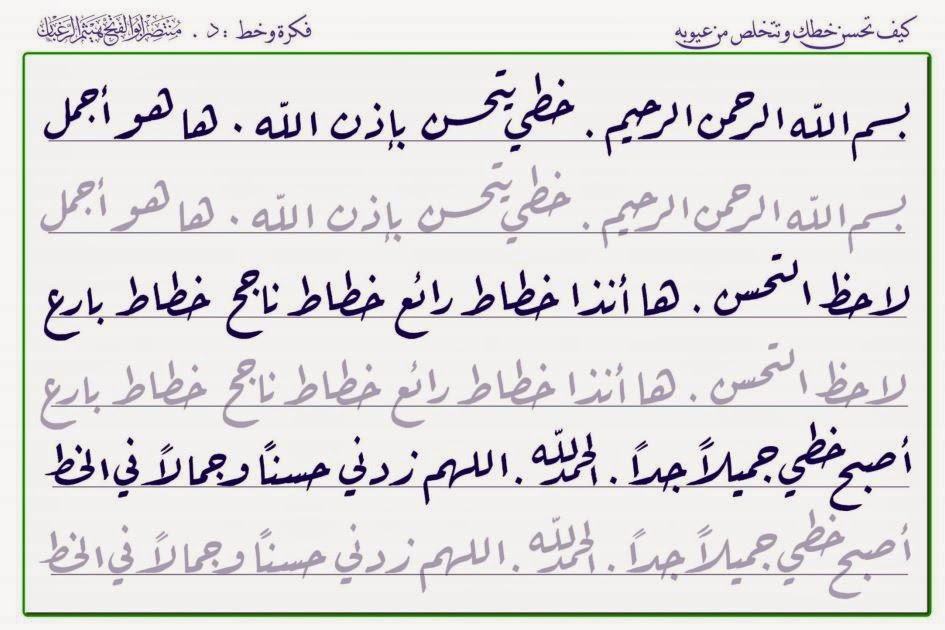 كيف تحسن خطك وتتخلص من عيوبه
فكرة وخط : د . منتصر أبو الفتح هيثم الرغبان
بسم الله الرحمن الرحيم . خطي يتحسن بإذن الله . ها هو أجمل
بسم الله الرحمن الرحيم . خطي يتحسن بإذن الله . ها هو أجمل
لاحظ التحسن . ها أنذا خطاط رائع خطاط ناجح خطاط بارع
لاحظ التحسن . ها أنذا خطاط رائع خطاط ناجح خطاط بارع
أصبح خطي جميلاً جداً . الحمد لله . اللهم زدني حسناً وجمالاً في الخط
أصبح خطي جميلاً جداً . الحمد لله . اللهم زدني حسناً وجمالاً في الخط